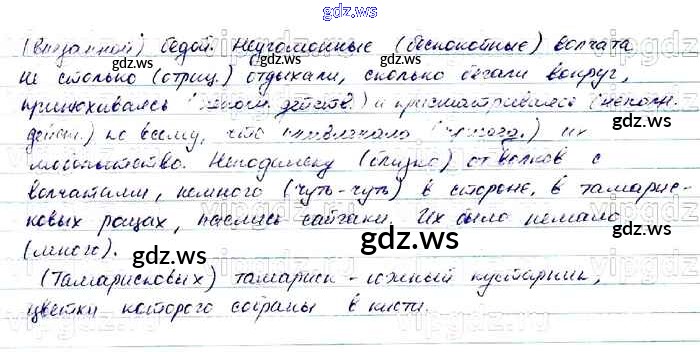 gdz.ws
(внезапной) бедой. Неугомонные (беспокойные) волчата
не столько (отриц.) отдыхали, сколько бегали вокруг,
принюхиваясь (неполн. действ.) и присматриваясь (неполн.
действ.) ко всему, что привлекало их
любопытство. Неподалеку (близко) от волков с
волчатами, немного (чуть-чуть) в стороне, в тамарис-
ковых рощах, паслись сайгаки. Их было немало
(много).
(Тамарисковых) тамариск - южный кустарник,
цветки которого собраны в кисти.
gdz.ws
gdz.ws
gdz.ws
gdz.ws
gdz.ws